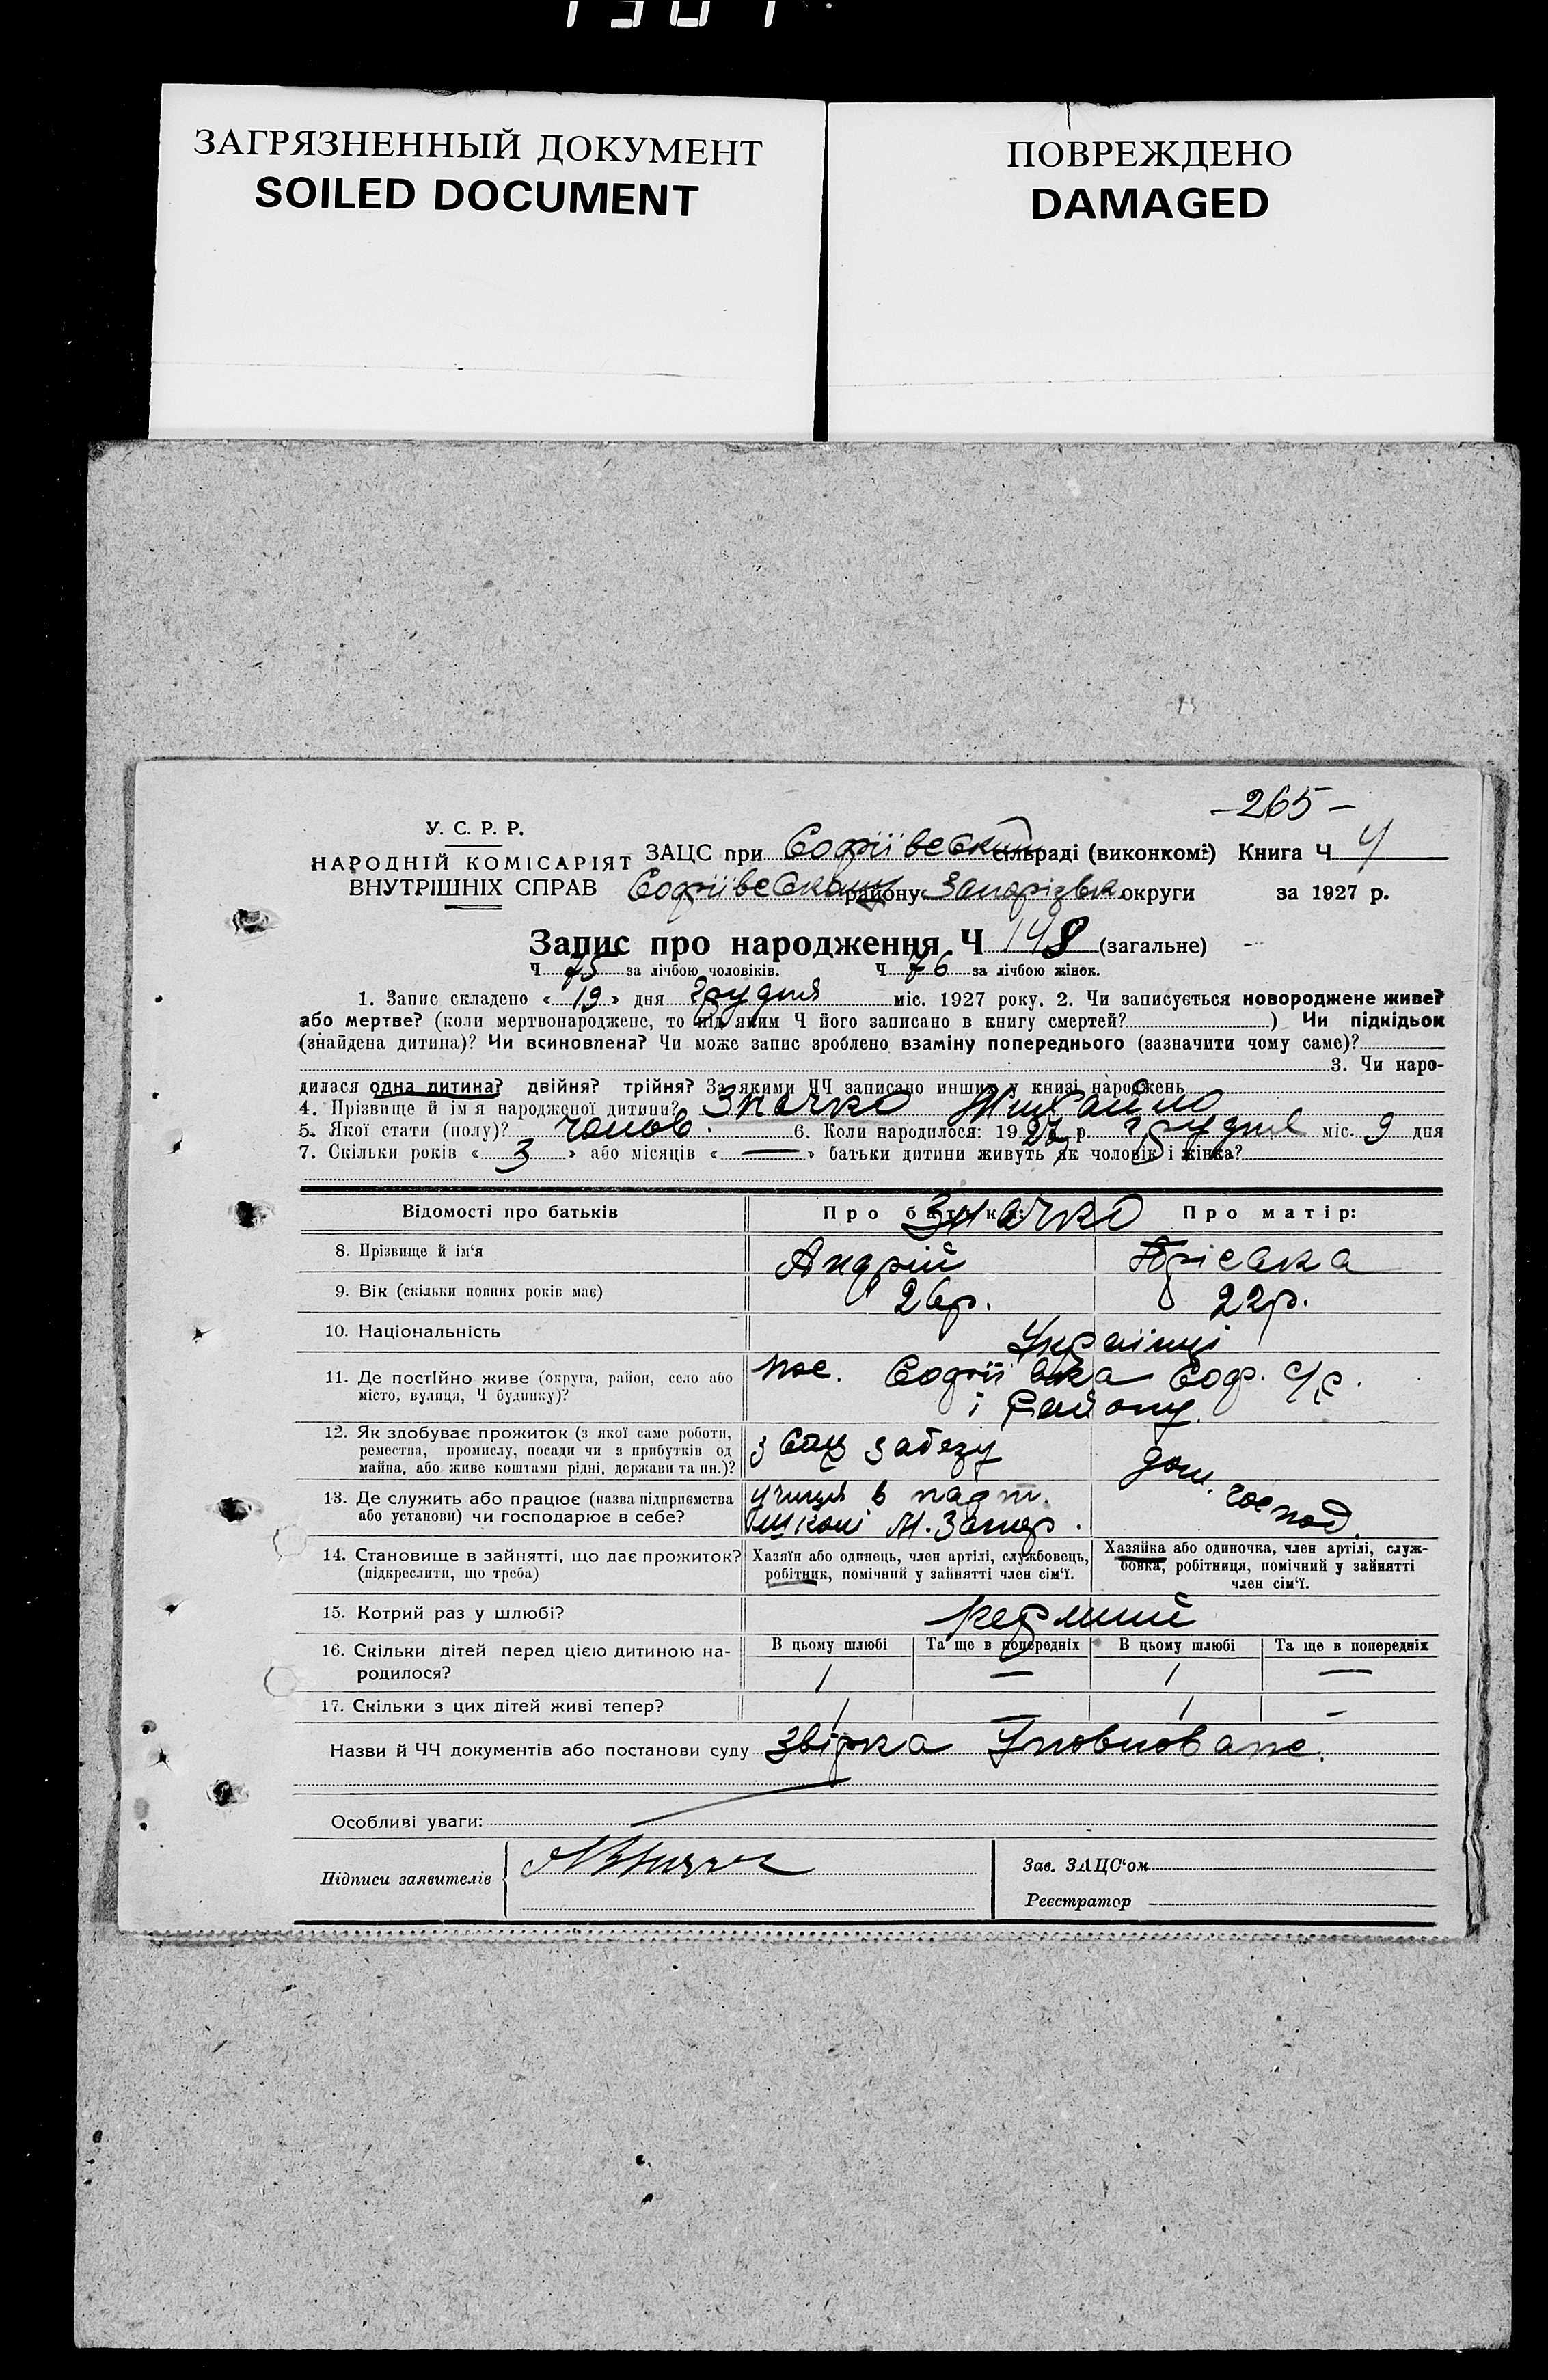 ЗАГРЯЗНЕННЫЙ ДОКУМЕНТ
SOILED DOCUMENT
ПОВРЕЖДЕНО
DAMAGED
-265-
У. С. Р. Р.
НАРОДНІЙ КОМІСАРІЯТ
ВНУТРІШНІХ СПРАВ
ЗАЦС при Софіївський сільраді (виконкомі) Книга Ч 4
Софіївському району Запорізьк округи за 1927 р.
Запис про народження Ч 148 (загальне)
Ч 75 за лічбою чоловіків. Ч 76 за лічбою жінок.
1. Запис складено « 19 » дня грудня міс. 1927 року. 2. Чи записується новороджене живе?
або мертве? (коли мертвонароджене, то під яким Ч його записано в книгу смертей? ) Чи підкідьок
(знайдена дитина)? Чи всиновлена? Чи може запис зроблено взаміну попереднього (зазначити чому саме)?
3. Чи наро-
дилася одна дитина? двійня? трійня? За якими ЧЧ записано инших у книзі народжень
4. Прізвище й ім'я народженої дитини? Значко Михайло
5. Якої стати (полу)? чолов. 6. Коли народилося: 1927 р. грудня міс. 9 дня
7. Скільки років « 3 » або місяців « — » батьки дитини живуть як чоловік і жінка?
Відомості про батьків Про батька: Про матір:
Значко
8. Прізвище й ім'я Андрій
9. Вік (скільки повних років має) 26р. 22р.
10. Національність Українці
11. Де постійно живе (округа, район, село або
місто, вулиця, Ч будинку)?
пос. Софіївка Соф. с/р.
і Району.
12. Як здобуває прожиток (з якої саме роботи,
ремества, промислу, посади чи з прибутків од
майна, або живе коштами рідні, держави та ин.)?
з Соц забезу
дом. господ.
13. Де служить або працює (назва підприємства
або установи) чи господарює в себе?
учиця в парт.
школі М. Запор.
14. Становище в зайнятті, що дає прожиток?
(підкреслити, що треба)
Хазяїн або одинець, член артілі, службовець,
робітник, помічний у зайнятті член сім'ї.
Хазяйка або одиночка, член артілі, служ-
бовка, робітниця, помічний у зайнятті
член сім'ї.
15. Котрий раз у шлюбі? перший
16. Скільки дітей перед цією дитиною на-
родилося?
В цьому шлюбі Та ще в попередніх В цьому шлюбі Та ще в попередніх
1 — 1 —
17. Скільки з цих дітей живі тепер? 1 — 1 —
Назви й ЧЧ документів або постанови суду Звірка
Особливі уваги:
Підписи заявителів
Зав. ЗАЦС'ом
Реєстратор